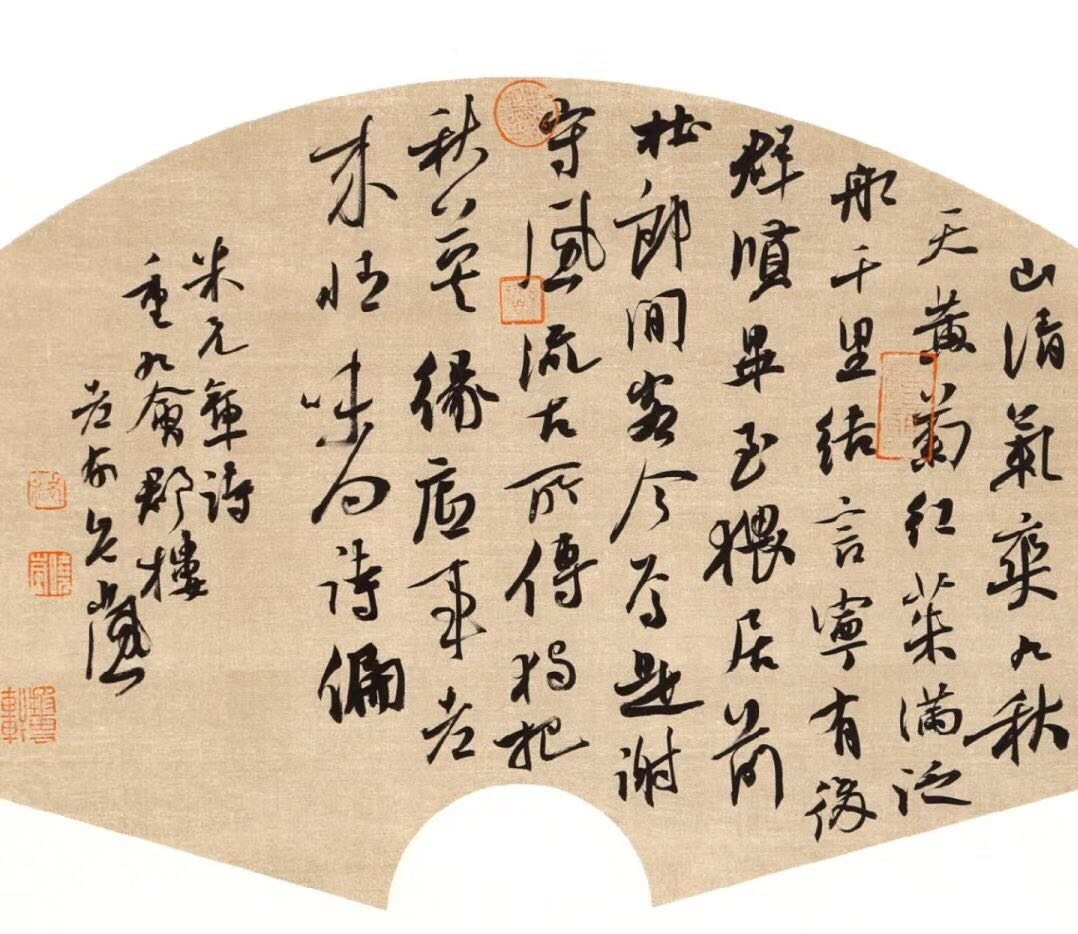 山清氣爽九秋
天黃菊紅茱滿泛
船千里結言寧有後
群賢畢至猥居前
杜郎間客今焉是謝
守風流古所傳獨把
秋英緣底事老
來情味向詩偏
米元章詩
重九會郡樓